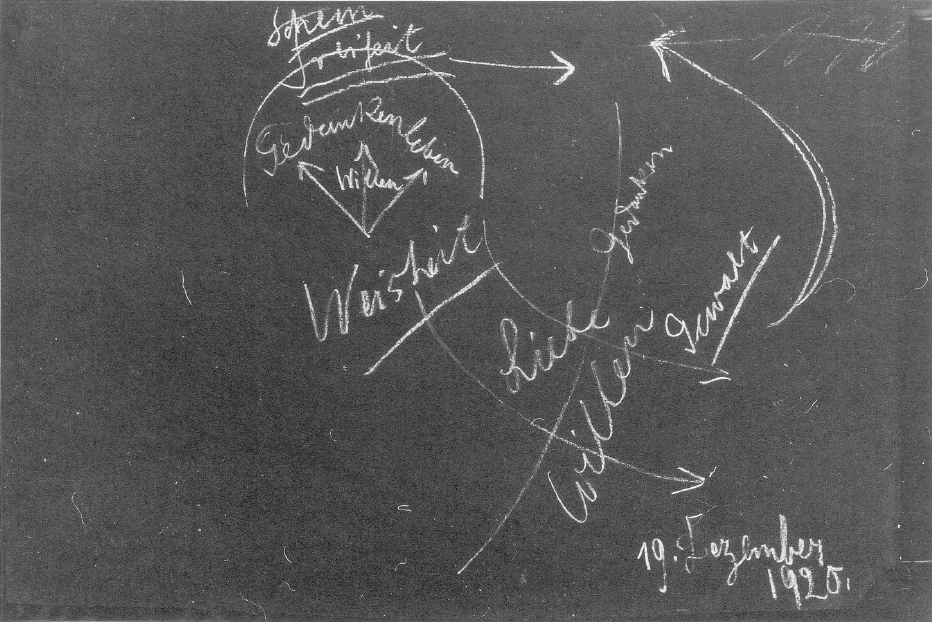 Schein
Freiheit
Gedankenleben
Willen
Weisheit
Gedanken
Liebe
Willen
Gewalt
19. Dezember
1920.